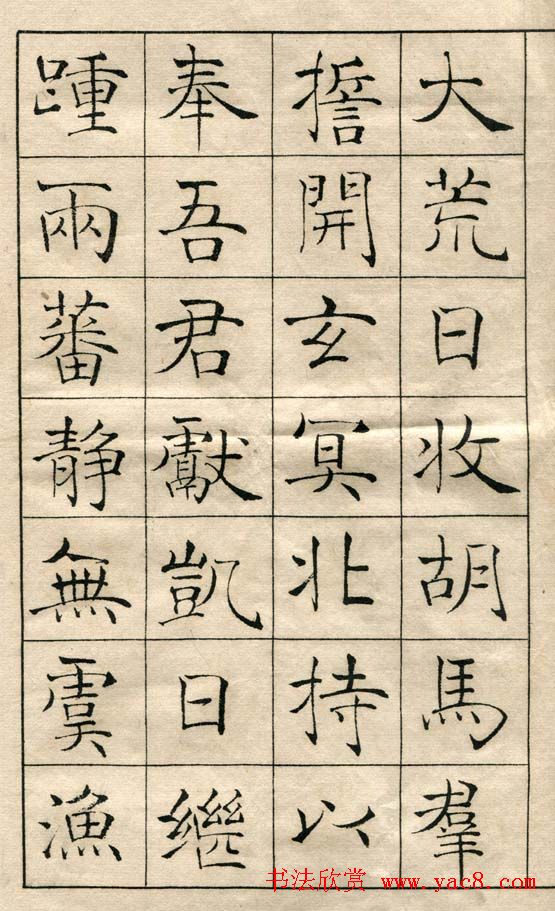 大荒日收胡馬羣
誓開玄冥北持以
奉吾君獻凱日繼
踵兩蕃静無虞漁
书法欣赏 www.yac8.com